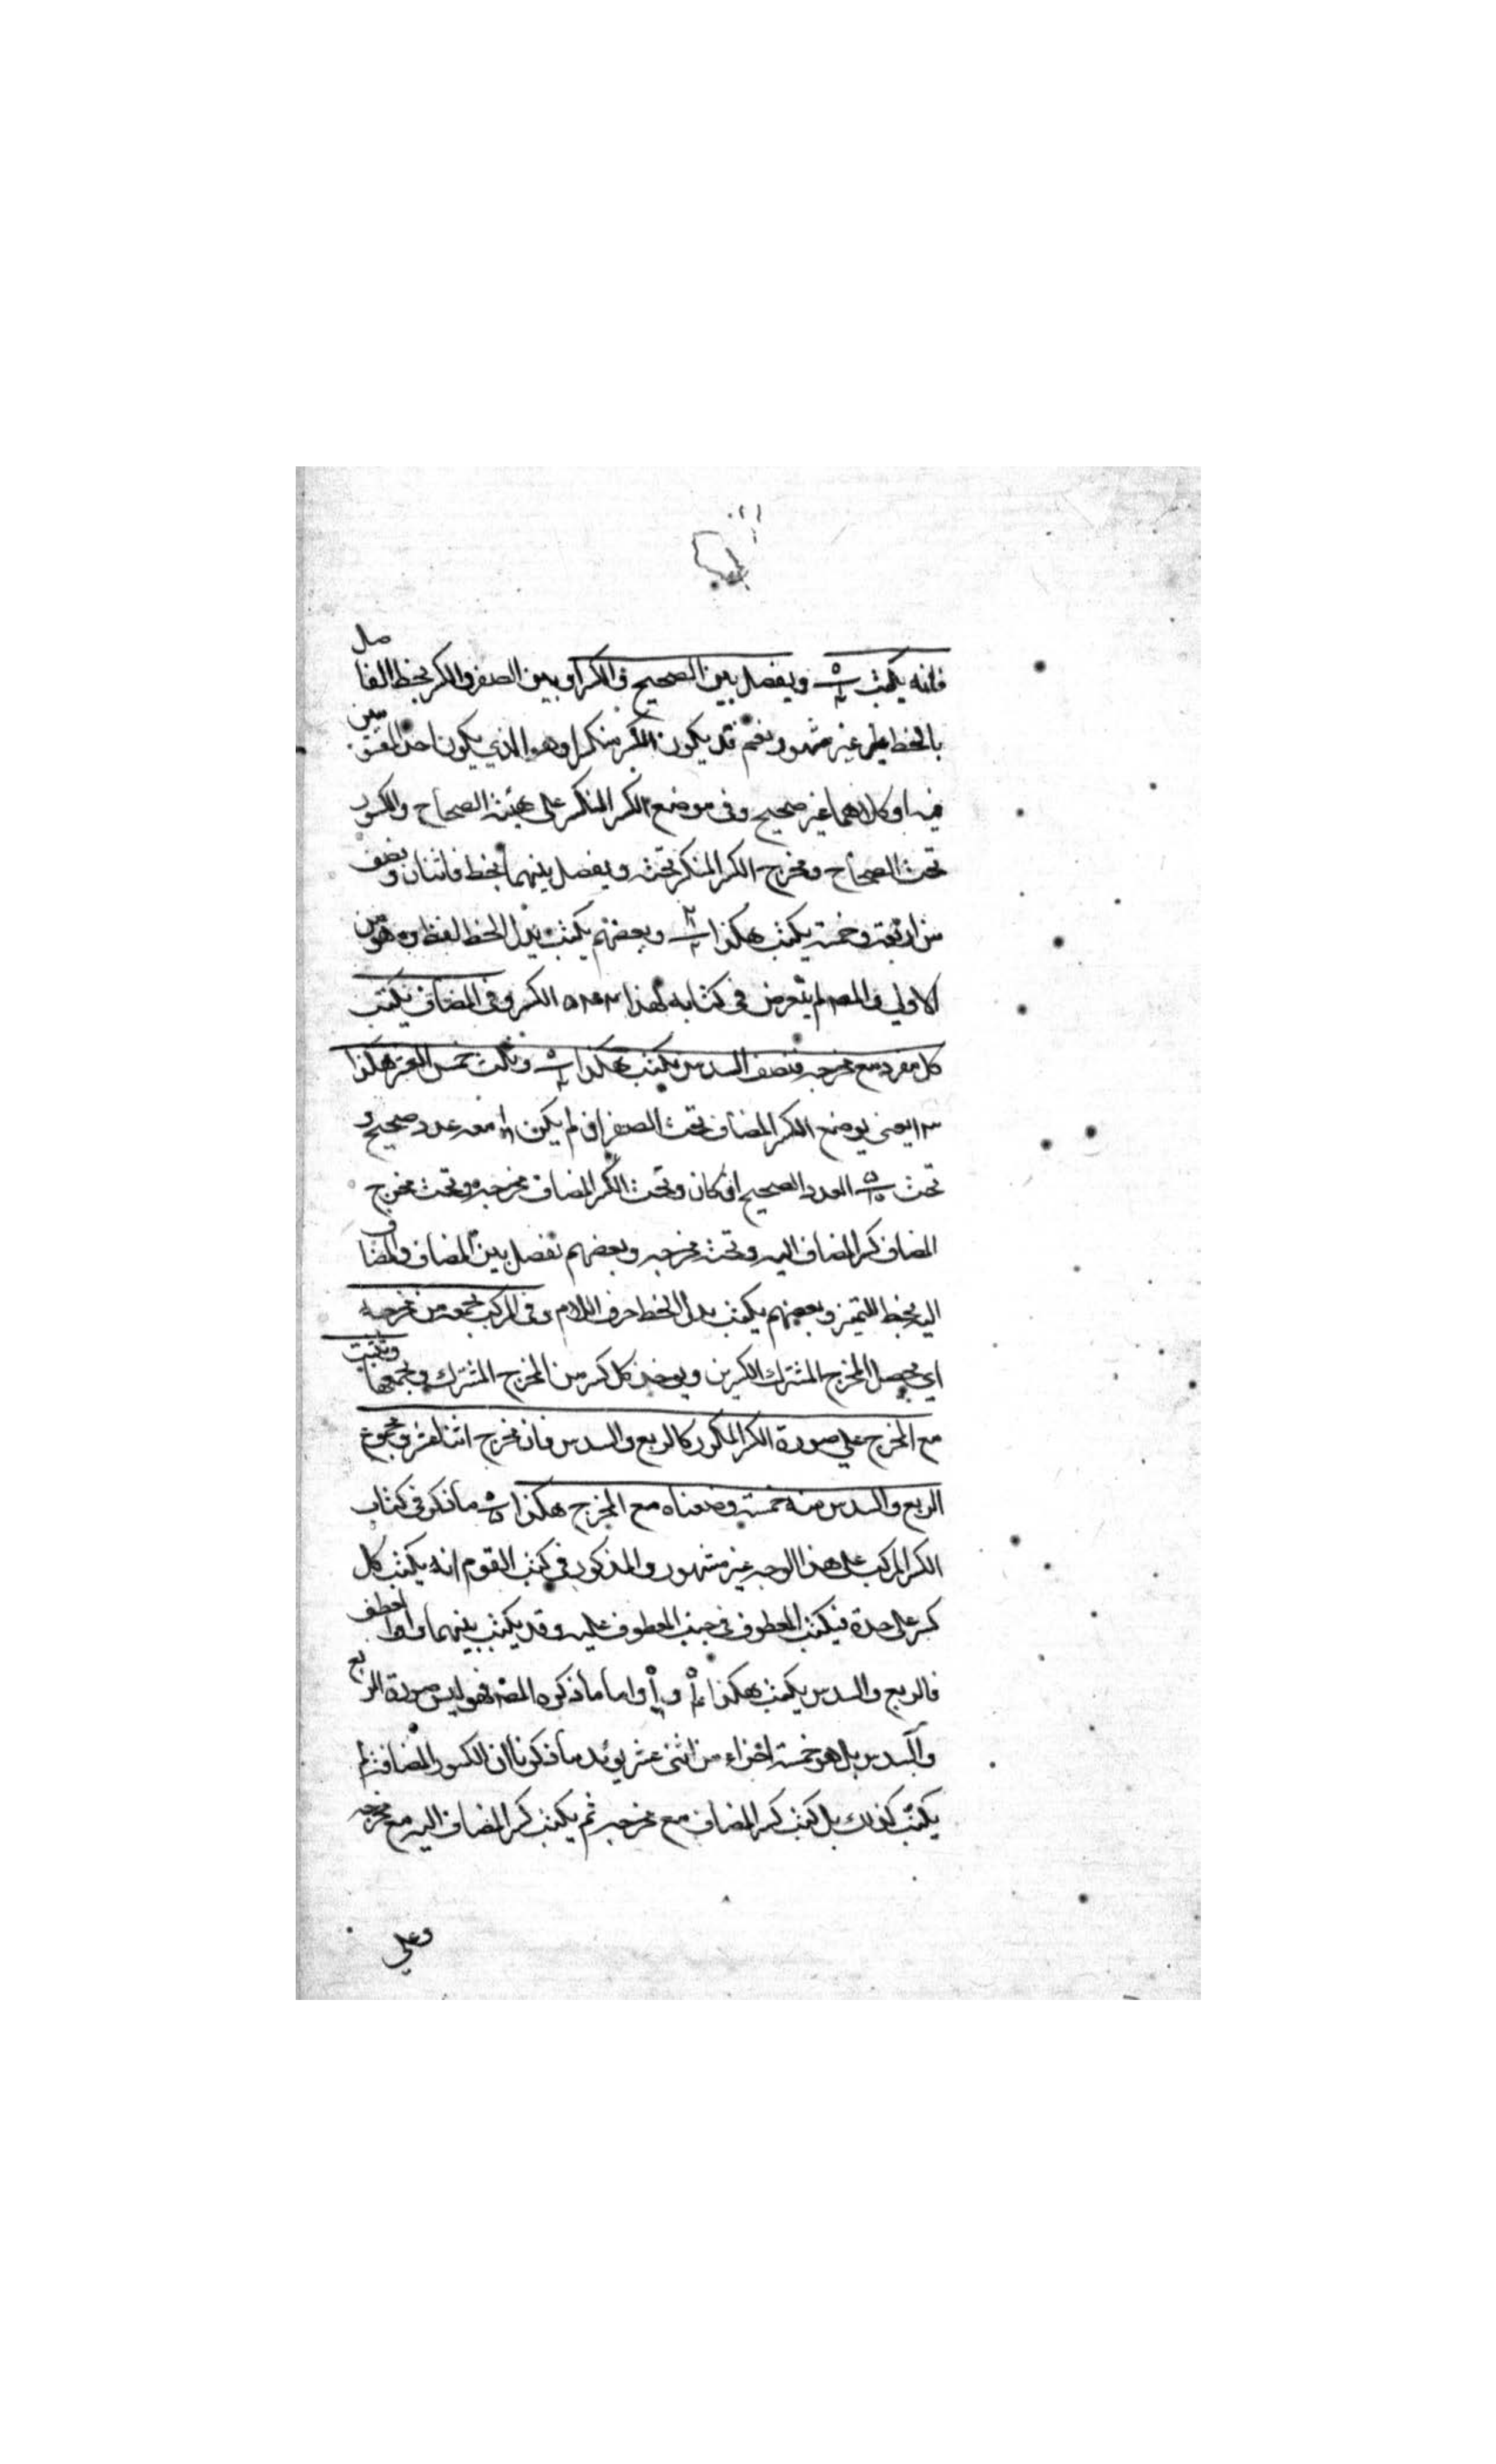 فانه يكتب ويفصل بين الصحيح والكسر او بين الصفر والكسر بخط الفاصل
بالخط غير مشهور نعم قد يكون الكسر منكسرا وهو الذي يكون احد المنتسبين
فيه او كلاهما غير صحيح وفى موضع الكسر المنكسر على هيئة الصحاح والكسور
تحت الصحاح ومخرج الكسر المنكسر تحته ويفصل بينهما بخط فاثنان ونصف
من اربعة وخمسة يكتب هكذا وبعضهم يكتب بدل الخط لفظ من وهو
الاولي والمصـ لم يتعرض فى كتابه لهذا الكسر وفى المضاف يكتب
كل مفرد مع مخرجه فنصف السدس يكتب هكذا وثلث خمس العشر هكذا
يعنى يوضع الكسر المضاف تحت الصفر ان لم يكن معه عدد صحيح و
تحت العدد الصحيح ان كان وتحت الكسر المضاف مخرجه وتحت مخرج
المضاف كسر المضاف اليه وتحته مخرجه وبعضهم تفصل بين المضاف والمضاف
اليه بخط للتميز وبعضهم يكتب بدل الخط حرف اللام وفى المركب تجمعه من مخرجه
اي يحصل المخرج المشترك الكسرين ويوخذ كل كسر من المخرج المشترك ويجمعها وتثبت
مع المخرج علي صورة الكسر المكرر كالربع والسدس فان مخرج اثنا عشر ومجموع
الربع والسدس منه خمسة وضعناه مع المخرج هكذا ما ذكر فى كتاب
الكسر المركب على هذا الوجه غير مشهور والمذكور فى كتب القوم انه يكتب كل
كسر على حدة فيكتب المعطوف فى جنب المعطوف عليه وقد يكتب بينهما واو العطف
فالربع والسدس يكتب هكذا واما ما ذكره المصـ فهو ليس صورة الربع
والسدس بل هو خمسة اجزاء من اثنى عشر يويد ما ذكرنا ان الكسور المضافة لم
يكتب كذلك بل كتب كسر المضاف مع مخرجه ثم يكتب كسر المضاف اليه مع مخرجه
وعلي